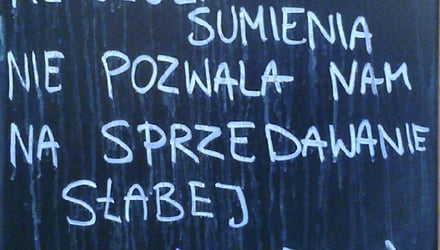 SUMIENIA
NIE POZWALA NAM
NA SPRZEDAWANIE
SŁABEJ